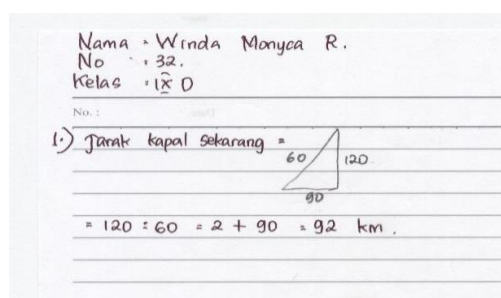 Nama : Winda Monyca R.
No : 32.
Kelas : IX D
No. :
1.) Jarak kapal sekarang =
60 120
90
= 120 : 60 = 2 + 90 = 92 km.